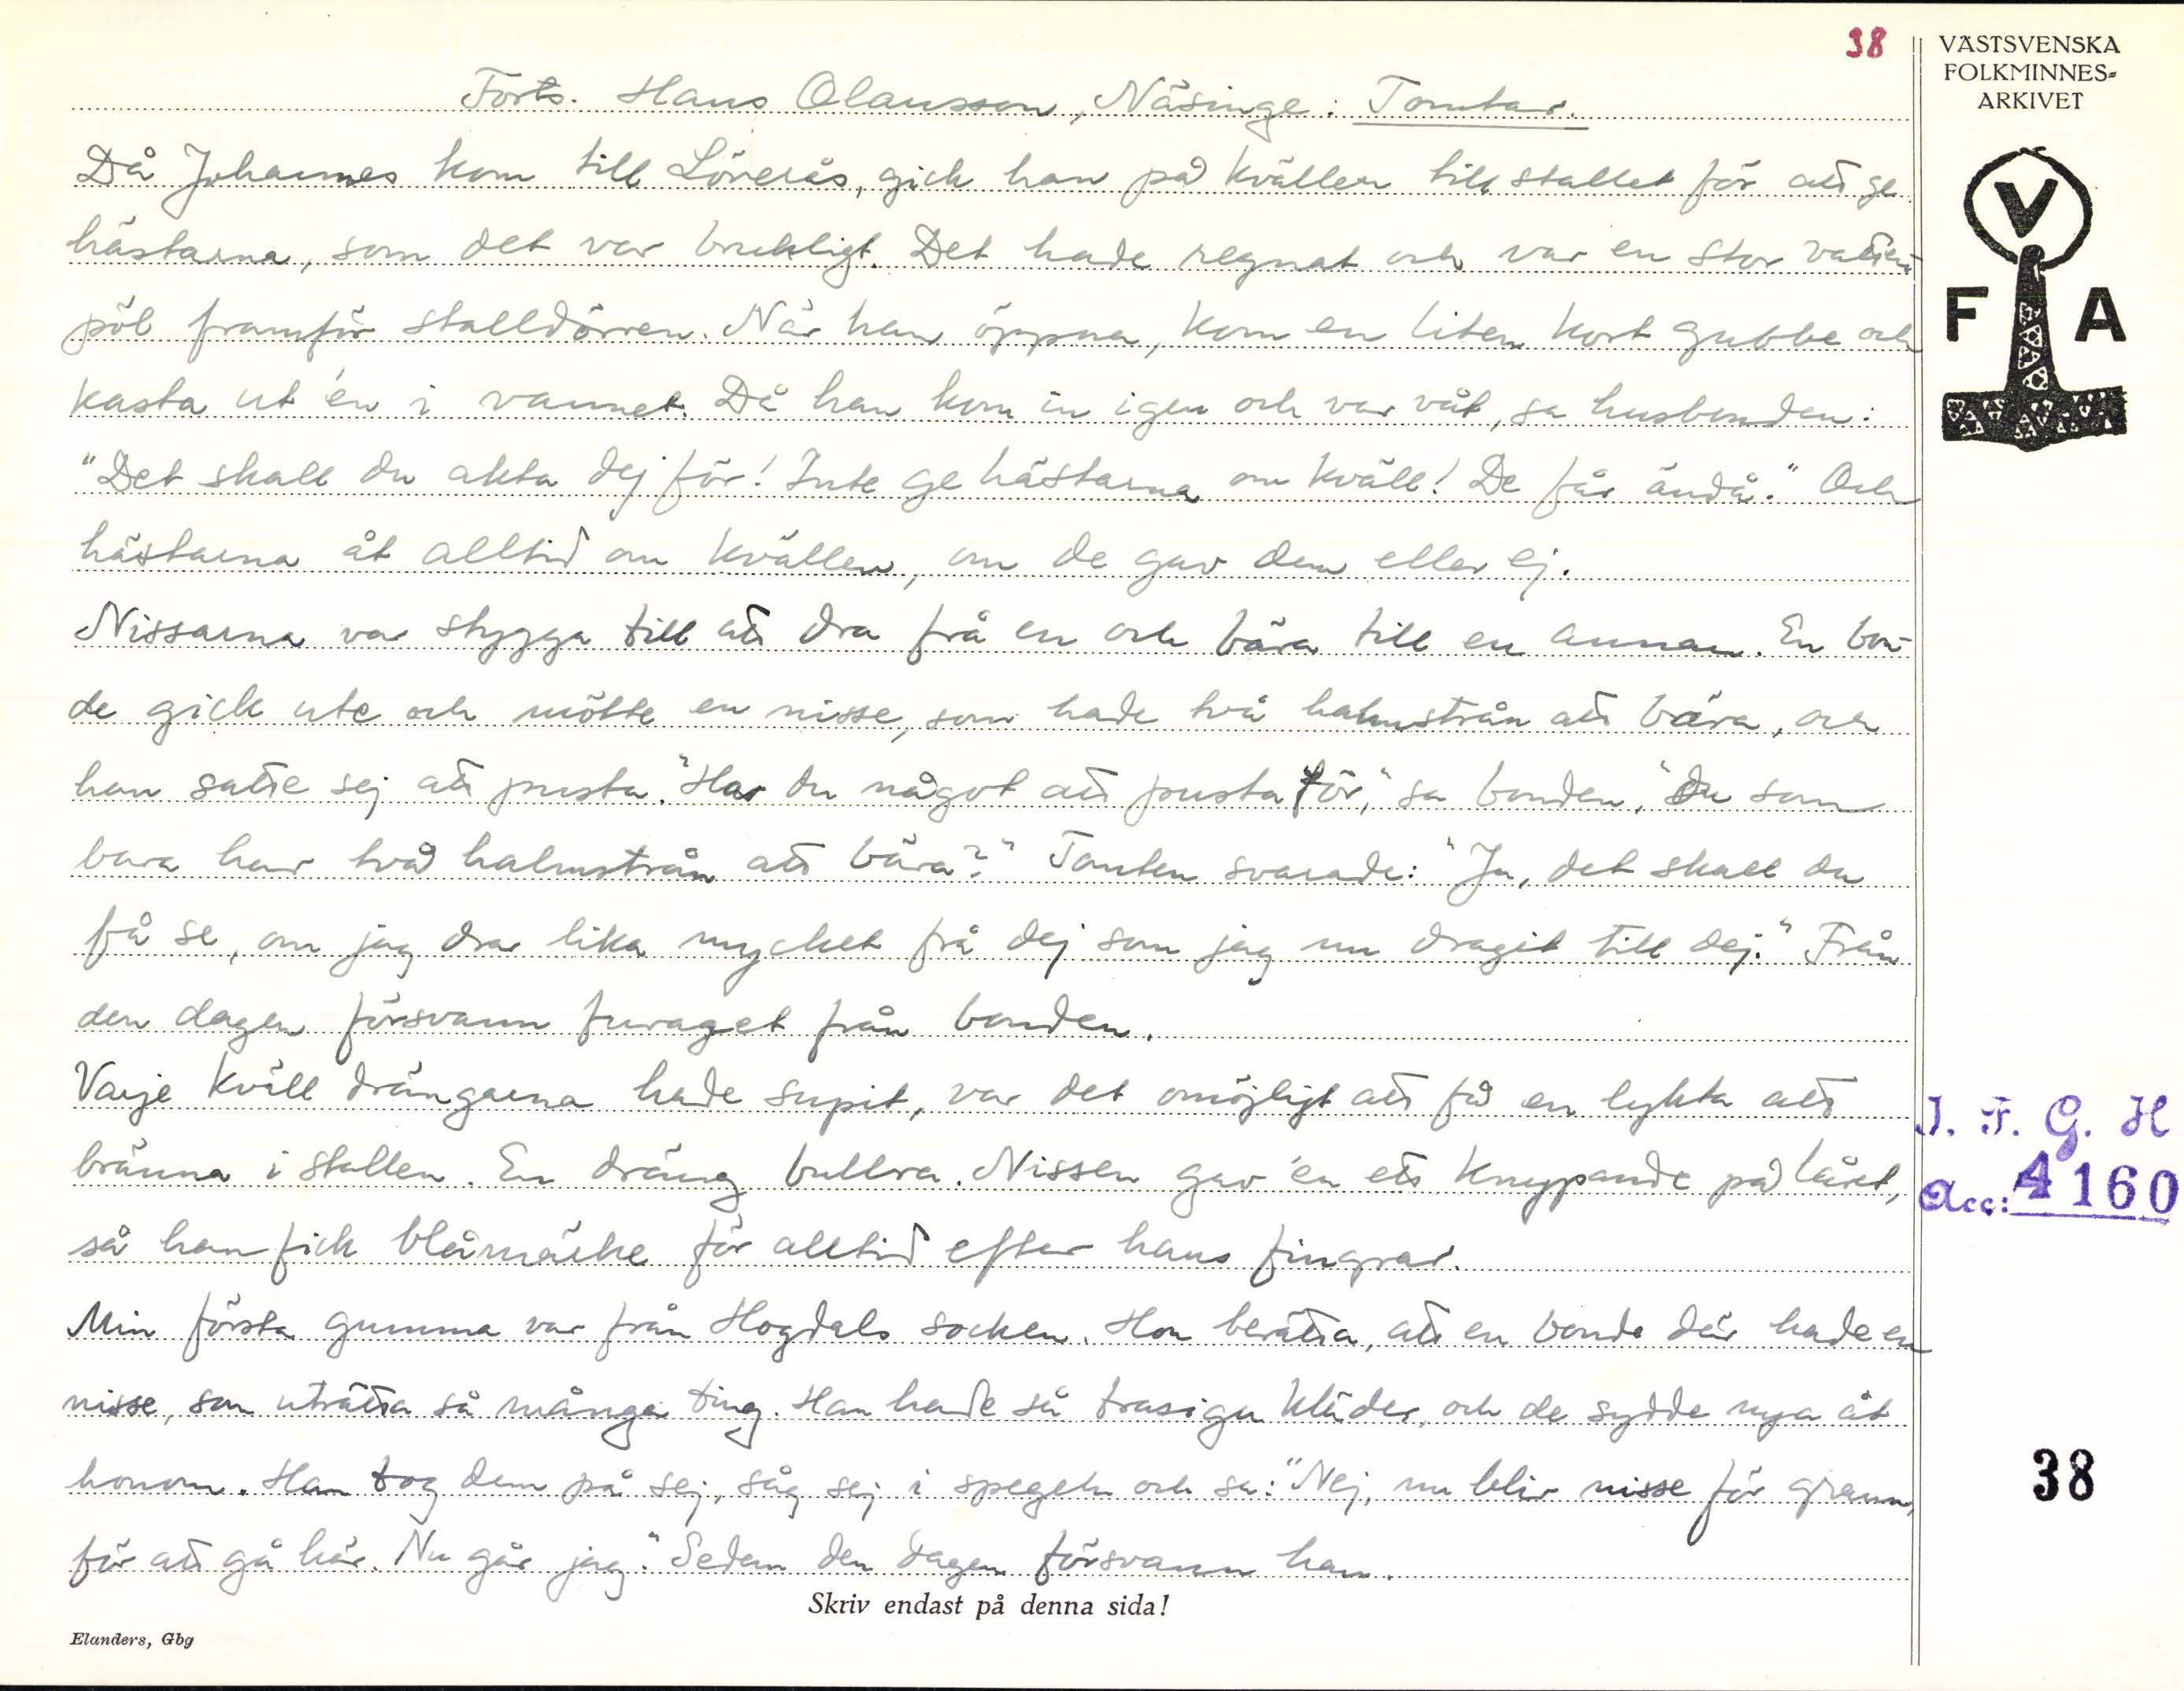 38
VÄSTSVENSKA
FOLKMINNES=
ARKIVET
V
F A
Forts. Hans Olausson, Näsinge: Tomtar.
Då Johannes kom till Löverås, gick han på kvällen till stallet för att ge
hästarna, som det var brukligt. Det hade regnat och var en stor vatten-
pöl framför stalldörren. När han öppna, kom en liten kort gubbe och
kasta ut 'en i vannet. Då han kom in igen och var våt, sa husbonden:
"Det skall du akta dej för! Inte ge hästarna om kväll! De får ändå." Och
hästarna åt alltid om kvällen, om de gav dem eller ej.
Nissarna var stygga till att dra frå en och bära till en annan. En bon-
de gick ute och mötte en nisse, som hade två halmstrån att bära, och
han satte sej att pusta. "Har du något att pusta för," sa bonden, "du som
bara har två halmstrån att bära?" Tomten svarade: "Ja, det skall du
få se, om jag drar lika mycket frå dej som jag nu dragit till dej." Från
den dagen försvann furaget från bonden.
Varje kväll drängarna hade supit, var det omöjligt att få en lykta att
bränna i stallen. En dräng bullra. Nissen gav 'en ett knypande på låret,
så han fick blåmärke för alltid efter hans fingrar.
Min första gumma var från Hogdals socken. Hon berätta, att en bonde där hade en
nisse, som uträtta så många ting. Han hade så trasiga kläder, och de sydde nya åt
honom. Han tog dem på sej, såg sej i spegeln och sa: "Nej, nu blir nisse för grann,
för att gå här. Nu går jag." Sedan den dagen försvann han.
I. F. G. H
Acc: 4160
38
Skriv endast på denna sida!
Elanders, Gbg